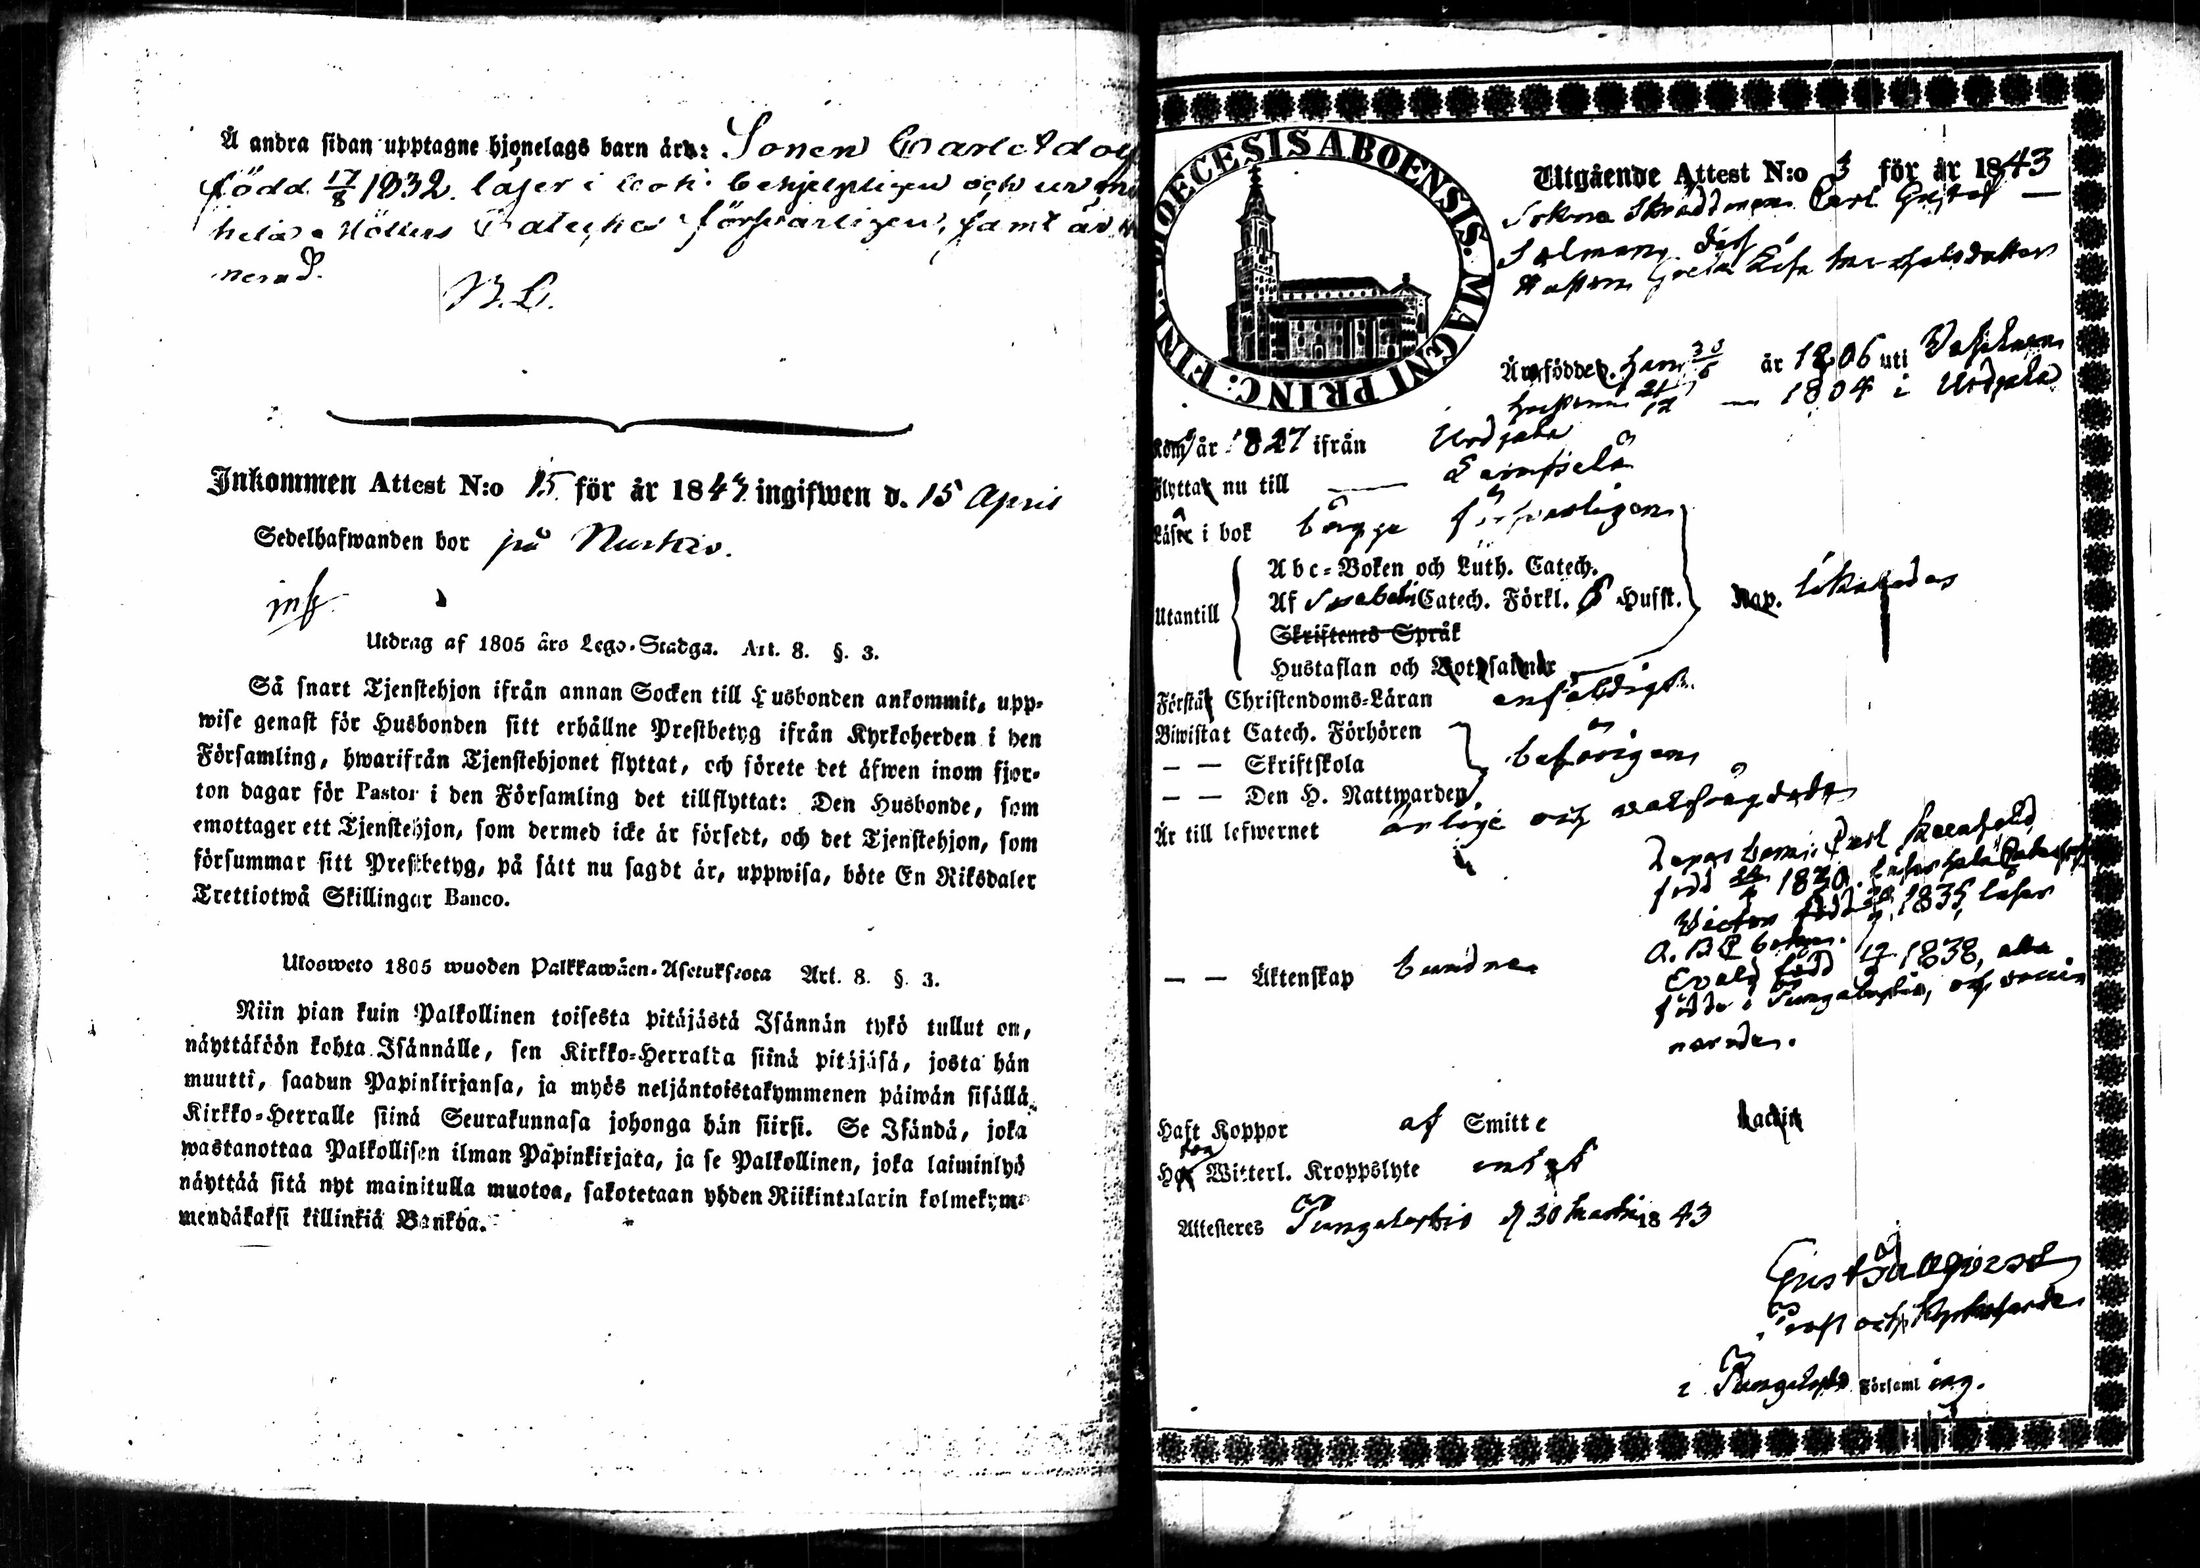 Å andra sidan upptagne hjonelags barn äro: Sonen Carl Adolf
född 17/8 1832. läser i bok behjelpligen och
hela Möllers Cateches försvarligen, samt är
nerad.
N.L.
Inkommen Attest N:o 15 för år 1843 ingifwen d. 15 April
Sedelhafwanden bor på
Utdrag af 1805 års Lego-Stadga. Art. 8. §. 3.
Så snart Tjenstehjon ifrån annan Socken till Husbonden ankommit, upp-
wise genast för Husbonden sitt erhållne Prestbetyg ifrån Kyrkoherden i den
Församling, hwarifrån Tjenstehjonet flyttat, och förete det äfwen inom fjor-
ton dagar för Pastor i den Församling det tillflyttat: Den Husbonde, som
emottager ett Tjenstehjon, som dermed icke är försedt, och det Tjenstehjon, som
försummar sitt Prestbetyg, på sätt nu sagdt är, uppwisa, böte En Riksdaler
Trettiotwå Skillingar Banco.
Ulosweto 1805 wuoden Palkkawäen-Asetuksesta Art. 8. §. 3.
Niin pian kuin Palkollinen toisesta pitäjästä Isännän tykö tullut on,
näyttäköön kohta Isännälle, sen Kirkko-Herralta siinä pitäjäsä, josta hän
muutti, saadun Papinkirjansa, ja myös neljäntoistakymmenen päiwän sisällä
Kirkko-Herralle siinä Seurakunnasa johonga hän siirsi. Se Isändä, joka
wastanottaa Palkollisen ilman Papinkirjata, ja se Palkollinen, joka laiminlyö
näyttää sitä nyt mainitulla muotoa, sakotetaan yhden Riikintalarin kolmekym-
mendäkaksi killinkiä Bankoa.
FINL. DIOECESIS ABOENSIS. MAGNI PRINC:
Utgående Attest N:o 3 för år 1843
Sokne Skräddaren Carl Gustaf
Salmang. dess
Hustru Greta Lisa
Är födde. han 30/6 år 1806 uti
hustrun 21/12 — 1804 i Urdjala
Kom år 1827 ifrån Urdjala
Flytta nu till
Läser i bok begge försvarligen
Abc-Boken och Luth. Catech.
Utantill Af Svebelii Catech. Förkl. 8 Husst. Kap.
Skriftenes Språk
Hustaflan och Botpsalmer
Förstå Christendoms-Läran enfaldigt.
Biwistat Catech. Förhören
— — Skriftskola behörigen
— — Den H. Nattwarden
Är till lefwernet ärlige och
Deras barn: Carl
född 1830. läser hela Catechesen
Victor född 1835, läser
A.B.C boken.
— — Äktenskap bundne
Evald född 1838, alla
födde i Pungalaitio, och vacci
nerade.
Haft Koppor af Smitte
Ha Witterl. Kroppslyte
Attesteres Pungalaitio d 30 Martii 1843
Gust
Prost och Kyrkoherde
i Församling.